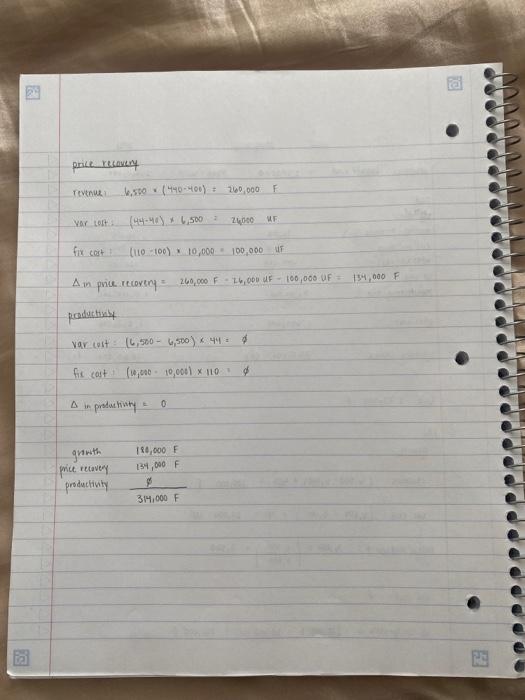 price recovery
revenue: 6,500 × (440-400) = 260,000 F
var cost: (44-40) × 6,500 = 26,000 UF
fix cost: (110-100) × 10,000 = 100,000 UF
Δ in price recovery = 260,000 F - 26,000 UF - 100,000 UF = 134,000 F
productivity
var cost: (6,500 - 6,500) × 44 = ∅
fix cost: (10,000 - 10,000) × 110 = ∅
Δ in productivity = 0
growth 180,000 F
price recovery 134,000 F
productivity ∅
314,000 F